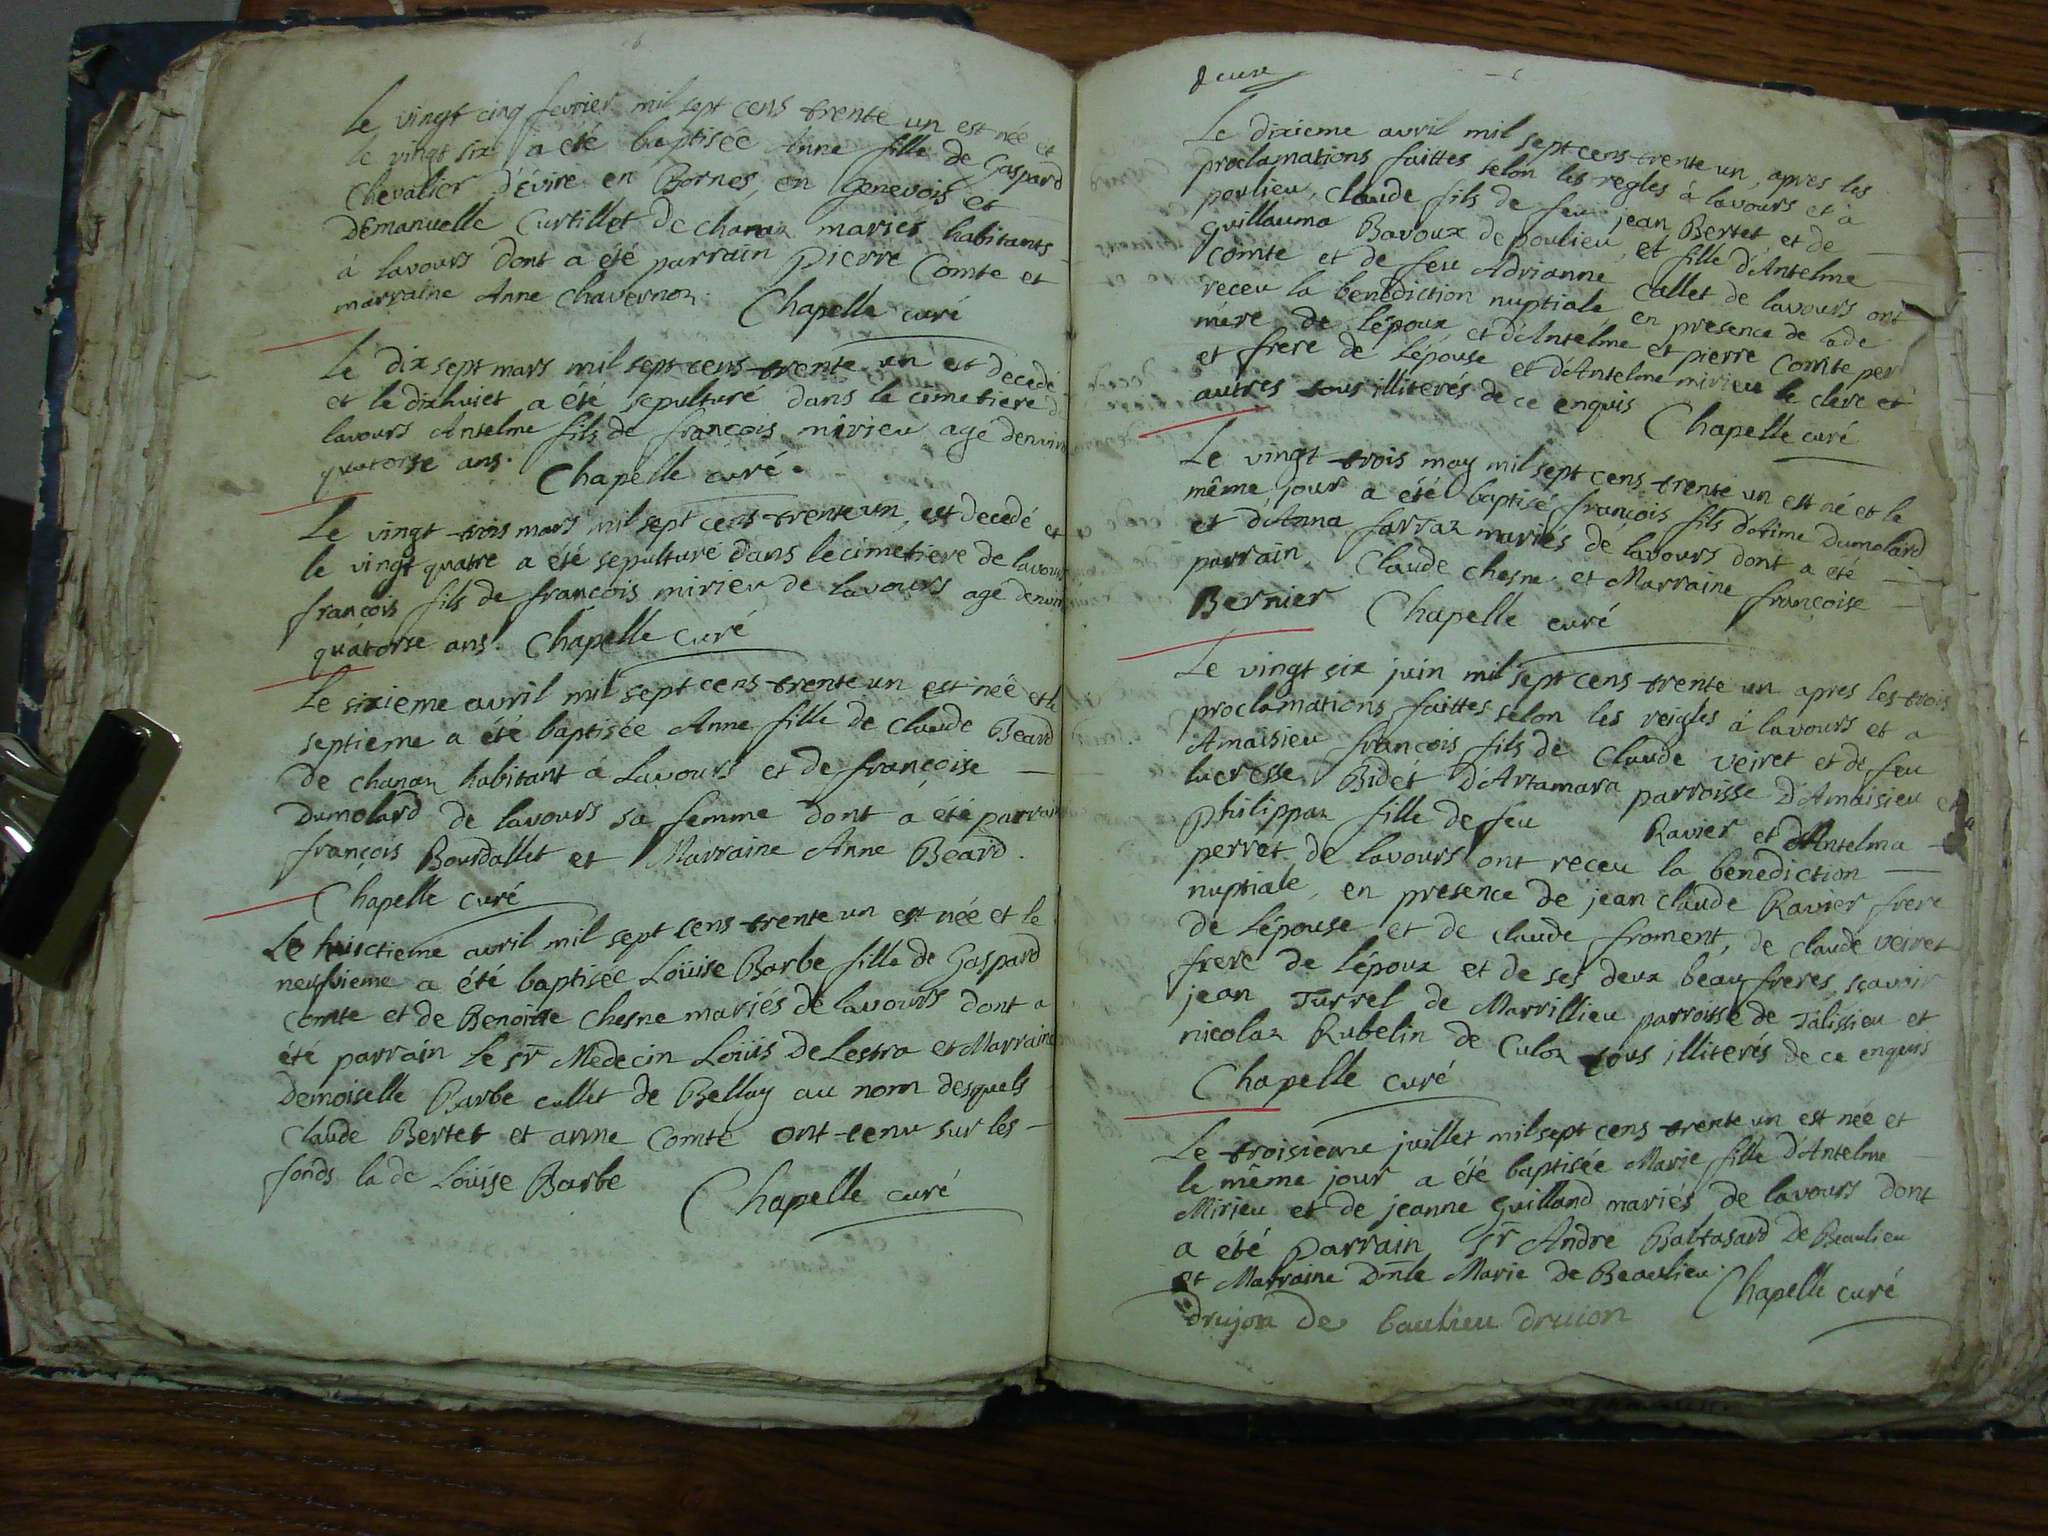 Le vingt cinq fevrier mil sept cens trente un est née et
le vingt six a été baptisée Anne fille de Gaspard
Chevalier d'évire en Bornes en Genevois et
D'Emanuelle Curtillet de chanaz mariés habitants
à lavours dont a été parrain Pierre Comte et
marraine Anne Chavernoz Chapelle curé
Le dix sept mars mil sept cens trente un est decedé
et le dixhuict a été sepulturé dans le cimetiere
lavours Antelme fils de françois mirieu agé denvir
quatorse ans. Chapelle curé.
Le vingt trois mars mil sept cens trente un est decedé et
le vingt quatre a été sepulturé dans le cimetiere de lavours
françois fils de françois mirieu de lavours agé denvir
quatorse ans. Chapelle curé
Le sixieme avril mil sept cens trente un est née et le
septieme a été baptisée Anne fille de Claude Beard
de chanaz habitant à Lavours et de françoise
Dumolard de lavours sa femme dont a été parrain
françois Bourdallet et Marraine Anne Beard.
Chapelle curé
Le huictieme avril mil sept cens trente un est née et le
neufvieme a été baptisée Loüise Barbe fille de Gaspard
Comte et de Benoitte Chesne mariés de lavours dont a
été parrain le Sr Medecin Loüis De Lestra et Marraine
Demoiselle Barbe cullet de Bellay au nom desquels
Claude Bertet et anne Comte ont tenu sur les
fonds lade Loüise Barbe Chapelle curé
Le dixieme avril mil sept cens trente un, apres les
proclamations faittes selon les regles à lavours et à
poulieu, Claude fils de feu jean Bertet et de
Guillauma Bavoux de poulieu, et fille d'Antelme
Comte et de feu Adrianne Callet de lavours ont
receu la benediction nuptiale en presence de lade
mére de l'époux et d'Antelme et pierre Comte per
et frere de l'épouse et d'Antelme mirieu le clerc et
autres tous illiterés de ce enquis Chapelle curé
Le vingt trois may mil sept cens trente un est né et le
même jour a été baptisé françois fils d'Aime Dumolard
et d'Anna farraz mariés de lavours dont a été
parrain Claude Chesne et Marraine françoise
Bernier Chapelle curé
Le vingt six juin mil sept cens trente un apres les trois
proclamations faittes selon les reigles à lavours et a
Amaisieu françois fils de Claude veiret et de feu
lucresse Bidét d'Artamara parroisse d'Amaisieu et
Philippaz fille de feu Ravier et d'Antelma
perret de lavours ont receu la benediction
nuptiale, en presence de jean claude Ravier frere
de l'épouse et de claude froment, de claude veiret
frere de l'époux et de ses deux beau freres sçavoir
jean Turrel de Marrillieu parroisse de Talissieu et
nicolaz Rubelin de Culoz tous illiterés de ce enquis
Chapelle curé
Le troisieme juillet mil sept cens trente un est née et
le même jour a été baptisée Marie fille d'Antelme
Mirieu et de jeanne Guilland mariés de lavours dont
a été parrain Sr André Baltasard De Beaulieu
et Marraine Dmle Marie de Beaulieu. Chapelle curé
drujon De baulieu druion